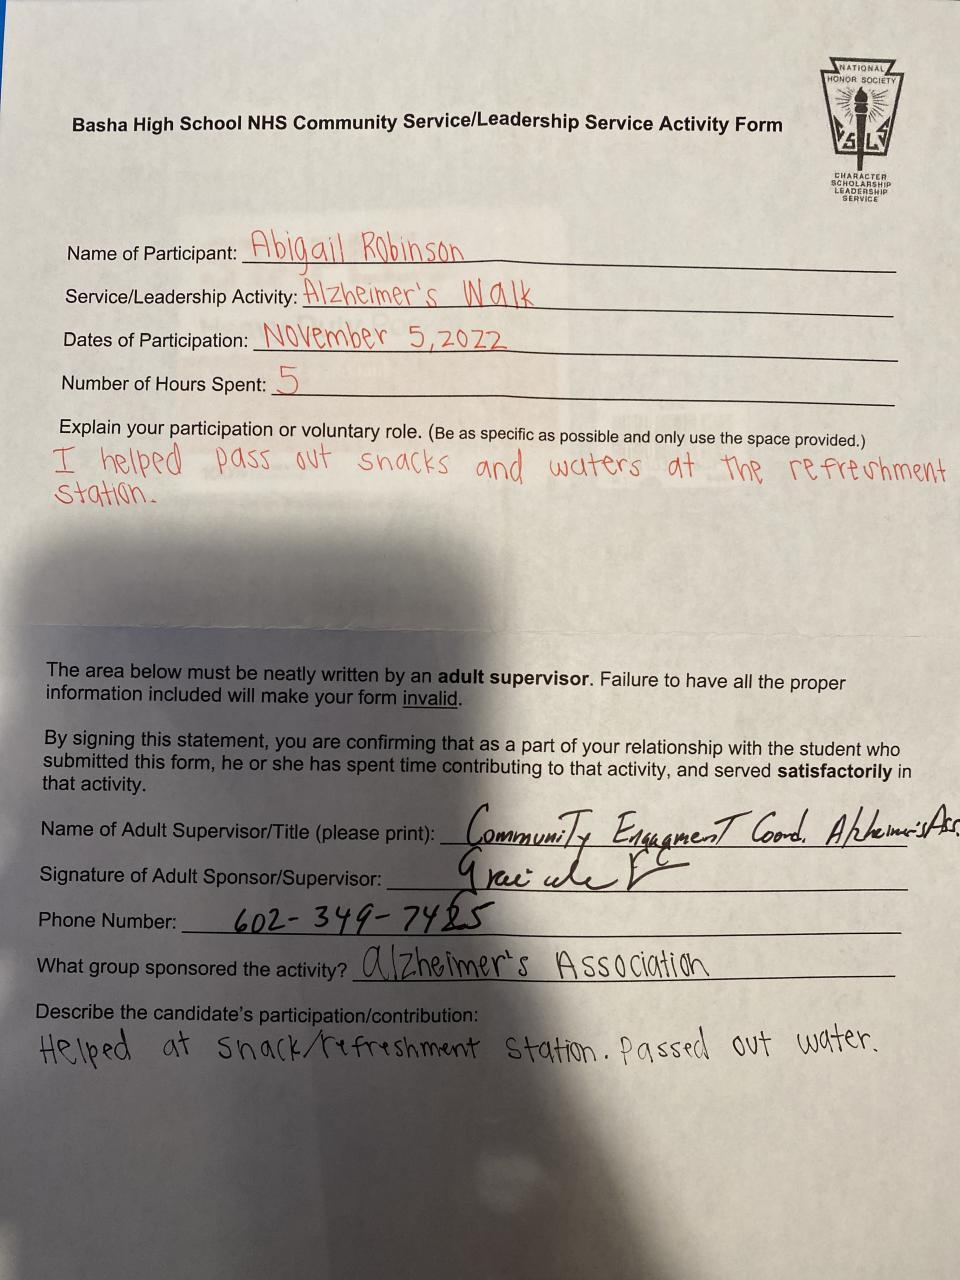 NATIONAL
HONOR SOCIETY
CSLS
CHARACTER
SCHOLARSHIP
LEADERSHIP
SERVICE
Basha High School NHS Community Service/Leadership Service Activity Form
Name of Participant: Abigail Robinson
Service/Leadership Activity: Alzheimer's Walk
Dates of Participation: November 5, 2022
Number of Hours Spent: 5
Explain your participation or voluntary role. (Be as specific as possible and only use the space provided.)
I helped pass out snacks and waters at the refreshment
station.
The area below must be neatly written by an adult supervisor. Failure to have all the proper
information included will make your form invalid.
By signing this statement, you are confirming that as a part of your relationship with the student who
submitted this form, he or she has spent time contributing to that activity, and served satisfactorily in
that activity.
Name of Adult Supervisor/Title (please print): Community Engagment Coord. Alzheimer's Ass.
Signature of Adult Sponsor/Supervisor:
Phone Number: 602-349-7485
What group sponsored the activity? Alzheimer's Association
Describe the candidate's participation/contribution:
Helped at snack/refreshment station. Passed out water.